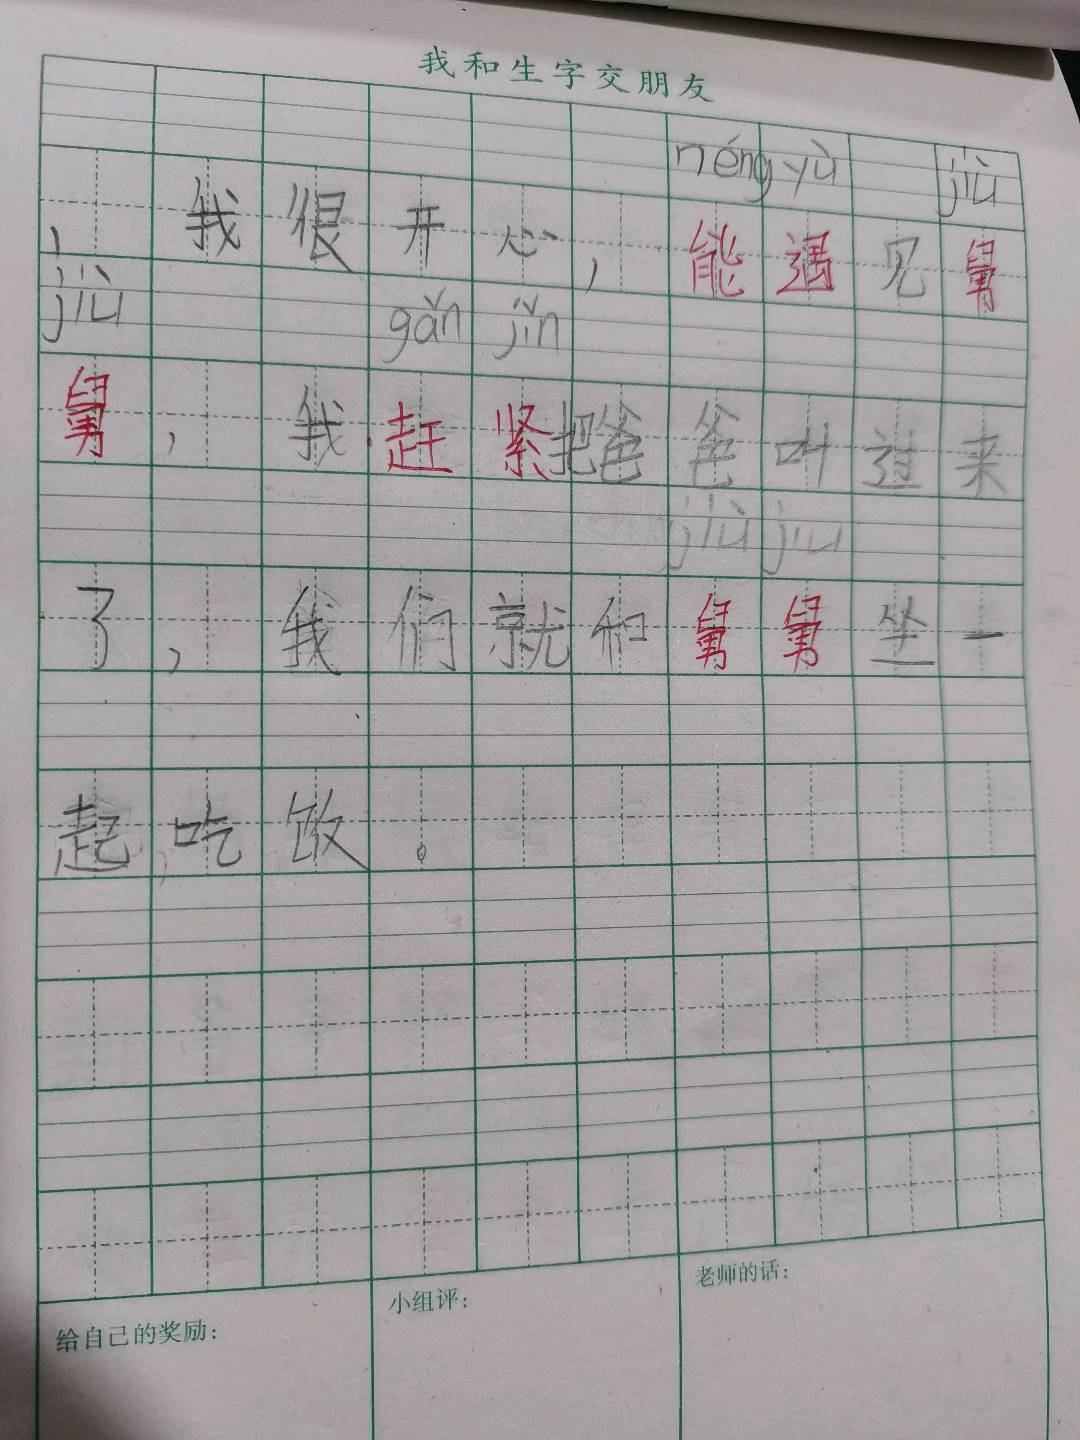 我和生字交朋友
néng yù jiù
，我很开心，能遇见舅
jiù gǎn jǐn
舅，我赶紧把爸爸叫过来
jiù jiu
了，我们就和舅舅坐一
起，吃饭。
给自己的奖励：
小组评：
老师的话：